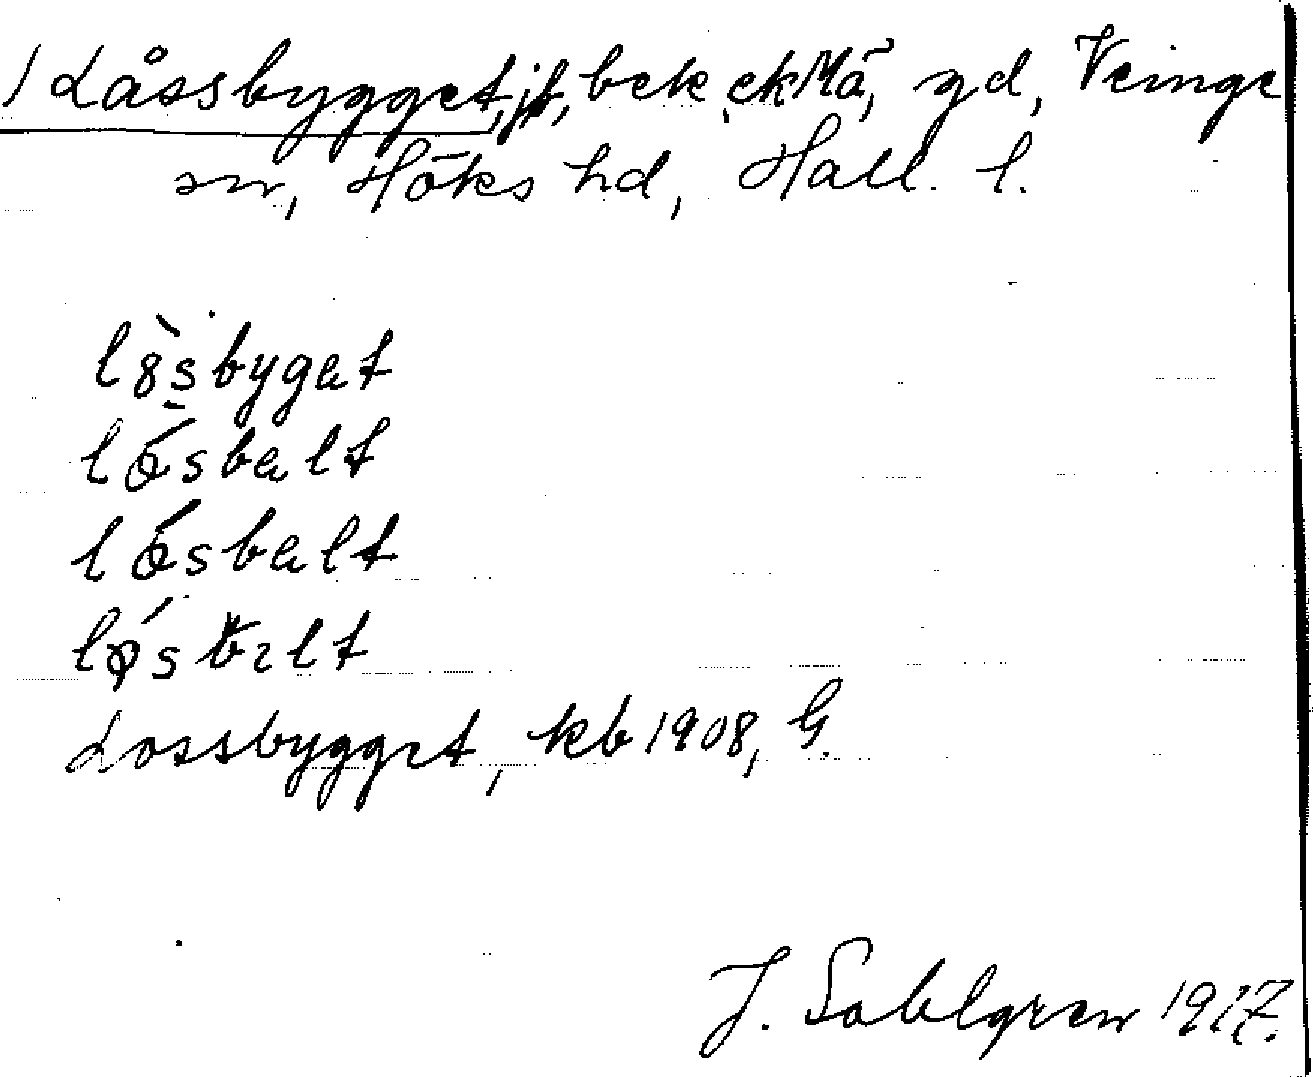 / Låssbygget, jf, bek ekMä, gd, Veinge
sn, Höks hd, Hall. l.
lòsbygat
lósbalt
lósbalt
Lossbygget, kb 1908, G.
J. Sahlgren 1917.